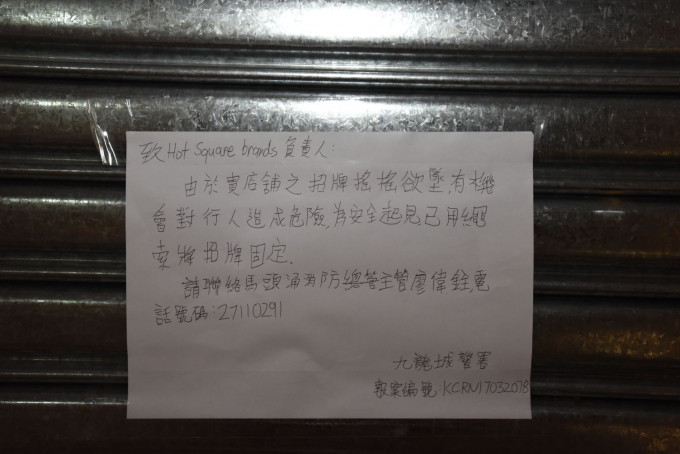 致 Hot Square brands 負責人:
由於賣店舖之招牌搖搖欲墜,有機
會對行人造成危險,為安全起見已用繩
索將招牌固定.
請聯絡馬頭涌消防總管主管廖偉銓,電
話號碼:27110291
九龍城警署
報案編號:KCRN17032078